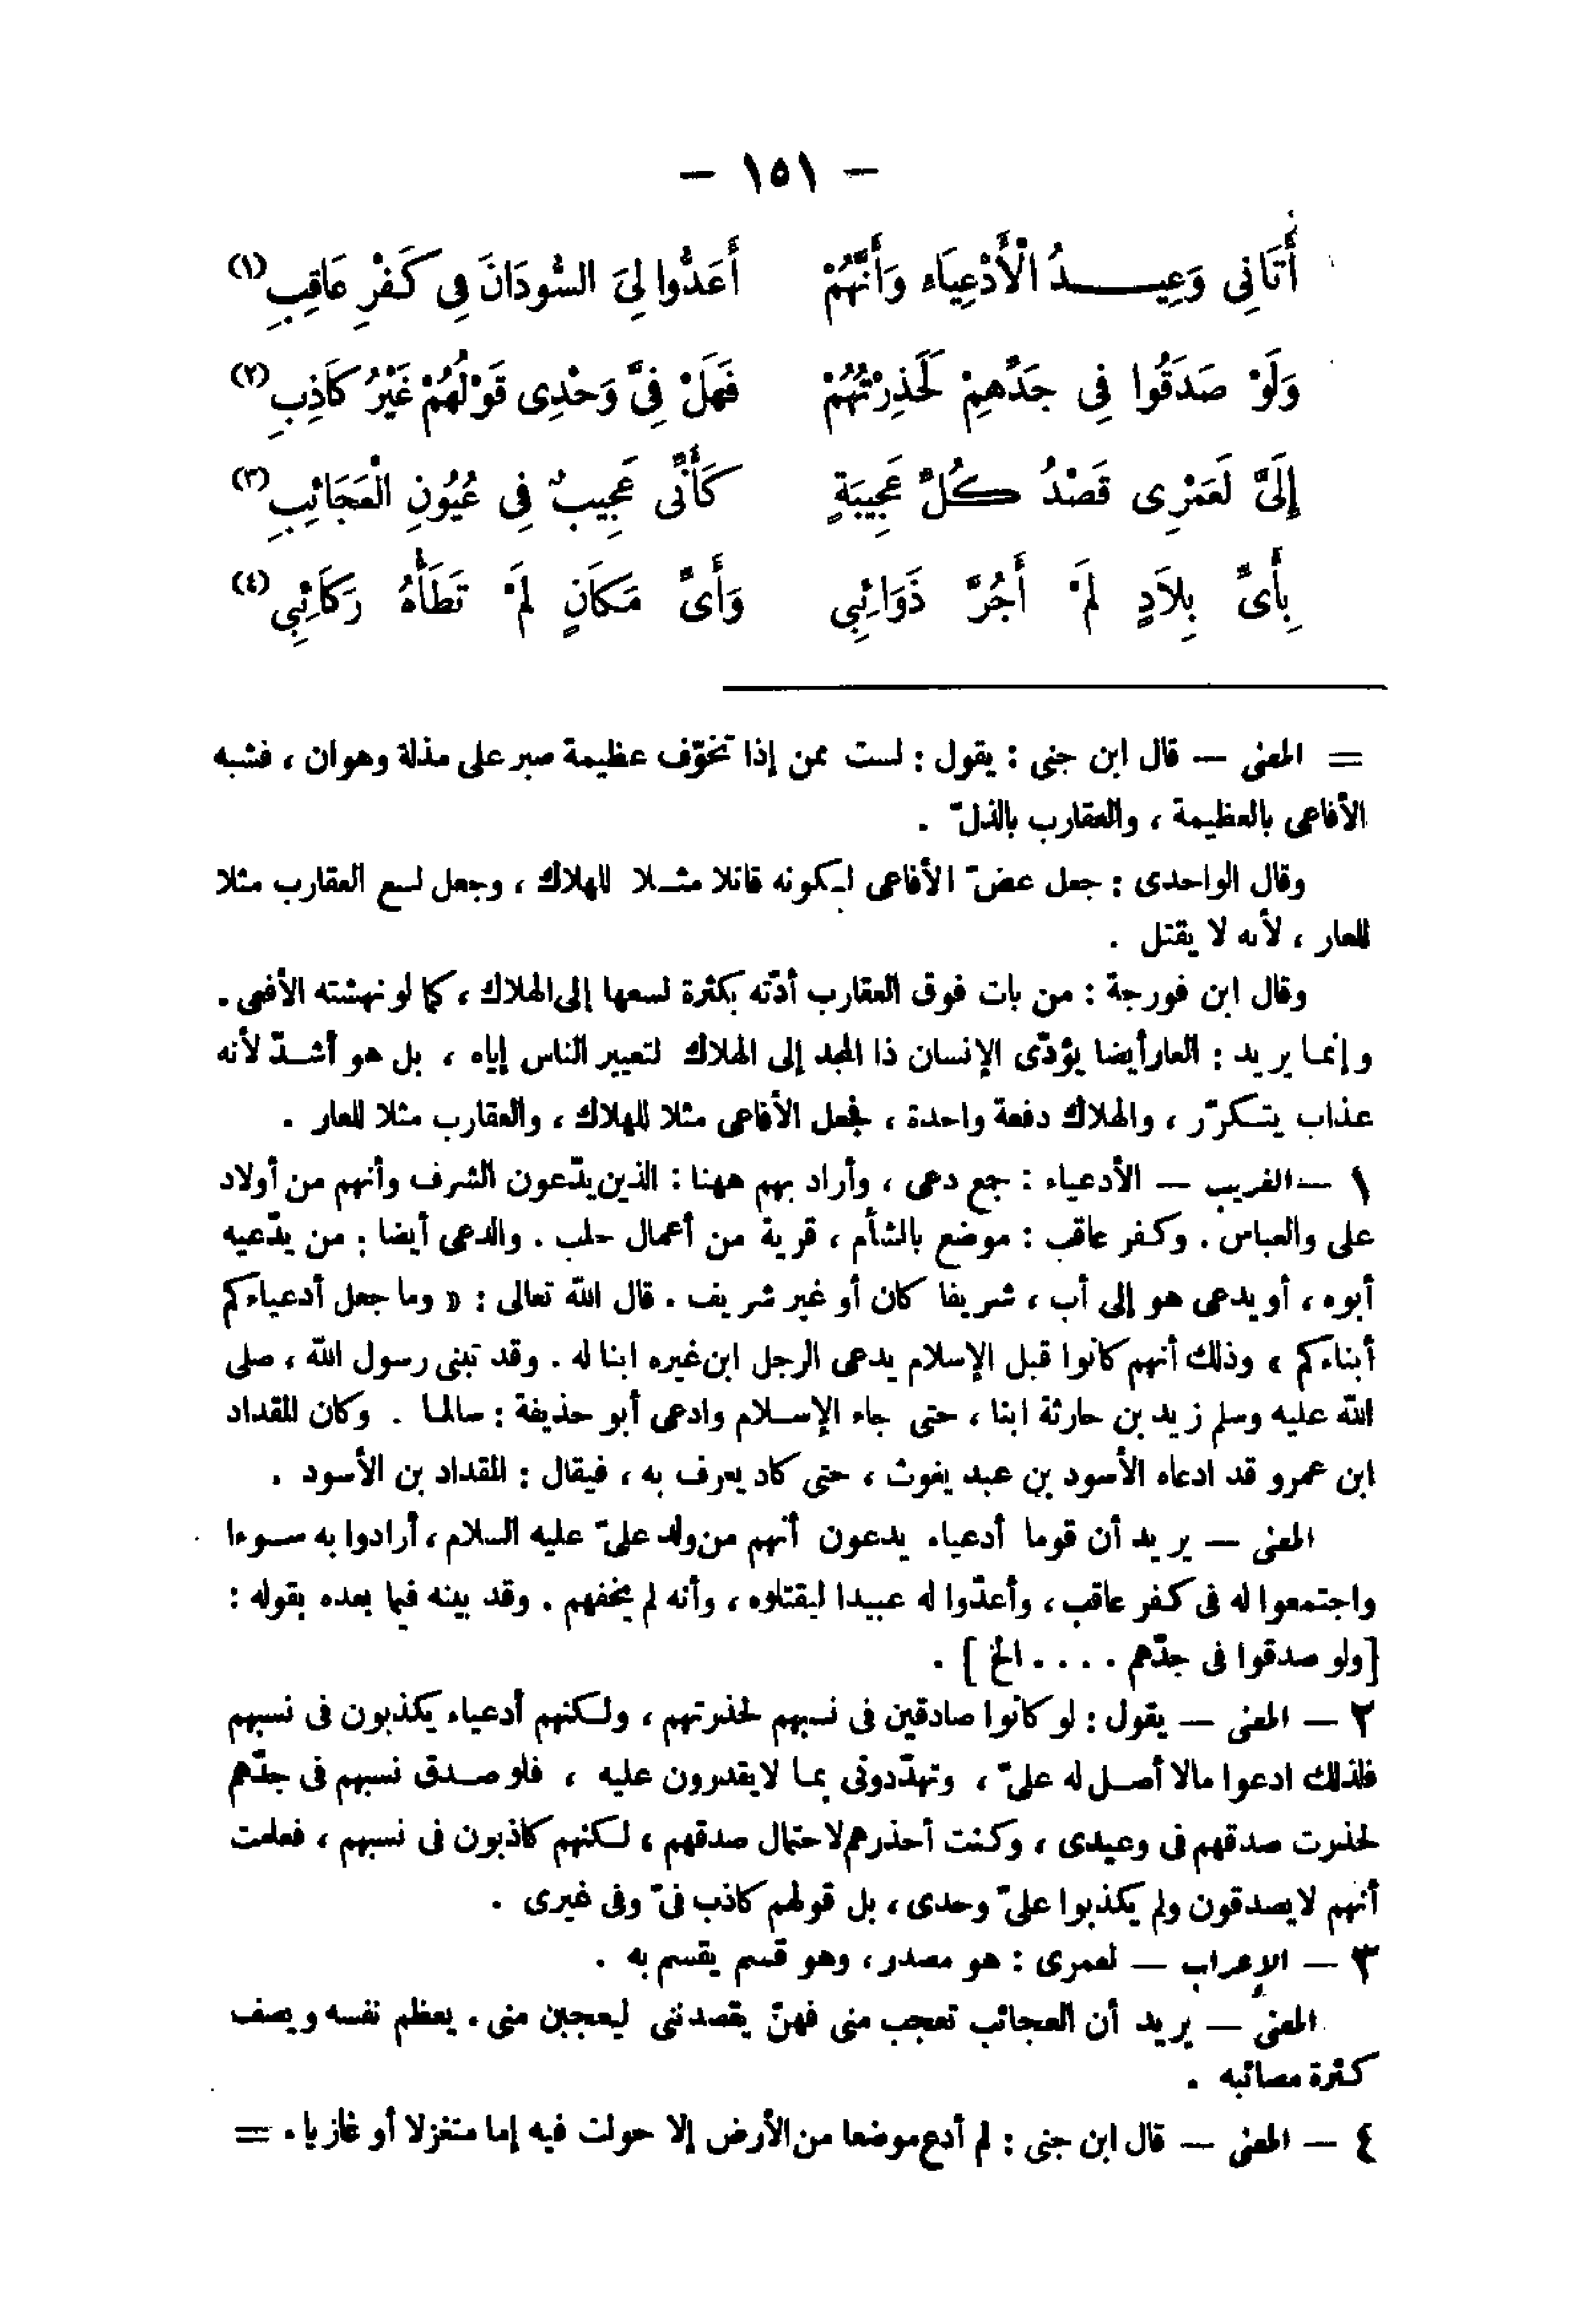 — ١٥١ —
أَتَانِى وَعِيـــــدُ الْأَدْعِيَاء وَأَنَّهُمْ أَعَدُّوا لِىَ السُّودَانَ فِى كَفْرِ عَاقِبِ (١)
وَلَوْ صَدَقُوا فِى جَدِّهِمْ لَحَذِرْتُهُمْ فَهَلْ فِىَّ وَحْدِى قَوْلُهُمْ غَيْرُ كَاذِبِ (٢)
إِلَىَّ لَعَمْرِى قَصْدُ كُلِّ عَجِيبَةٍ كَأَنِّى عَجِيبٌ فِى عُيُونِ الْعَجَائِبِ (٣)
بِأَىِّ بِلاَدٍ لَمْ أَجُرَّ ذَوَائِبِى وَأَىُّ مَكَانٍ لَمْ تَطَأْهُ رَكَائِبِى (٤)
= المعنى — قال ابن جنى : يقول : لست ممن إذا تخوّف عظيمة صبر على مذلة وهوان ، فشبه
الأفاعى بالعظيمة ، والعقارب بالذلّ .
وقال الواحدى : جعل عضّ الأفاعى لـكونه قاتلا مثـلا للهلاك ، وجعل لسع العقارب مثلا
للعار ، لأنه لا يقتل .
وقال ابن فورجة : من بات فوق العقارب أدّته بكثرة لسعها إلى الهلاك ، كما لو نهشته الأفعى .
وإنما يريد : العار أيضا يؤدّى الإنسان ذا المجد إلى الهلاك لتعيير الناس إياه ، بل هو أشـدّ لأنه
عذاب يتـكرّر ، والهلاك دفعة واحدة ، فجعل الأفاعى مثلا للهلاك ، والعقارب مثلا للعار .
١ — الغريب — الأدعياء : جمع دعى ، وأراد بهم ههنا : الذين يدّعون الشرف وأنهم من أولاد
على والعباس . وكفر عاقب : موضع بالشأم ، قرية من أعمال حلب . والدعى أيضا : من يدّعيه
أبوه ، أو يدعى هو إلى أب ، شريفا كان أو غير شريف . قال الله تعالى : « وما جعل أدعياءكم
أبناءكم » وذلك أنهم كانوا قبل الإسلام يدعى الرجل ابن غيره ابنا له . وقد تبنى رسول الله ، صلى
الله عليه وسلم زيد بن حارثة ابنا ، حتى جاء الإسـلام وادعى أبو حذيفة : سالما . وكان المقداد
ابن عمرو قد ادعاه الأسود بن عبد يغوث ، حتى كاد يعرف به ، فيقال : المقداد بن الأسود .
المعنى — يريد أن قوما أدعياء يدعون أنهم من ولد علىّ عليه السلام ، أرادوا به سـوءا
واجتمعوا له فى كفر عاقب ، وأعدّوا له عبيدا ليقتلوه ، وأنه لم يخفهم . وقد بينه فيما بعده بقوله :
[ولو صدقوا فى جدّهم . . . . الخ ] .
٢ — المعنى — يقول : لو كانوا صادقين فى نسبهم لحذرتهم ، ولـكنهم أدعياء يكذبون فى نسبهم
فلذلك ادعوا مالا أصـل له علىّ ، وتهدّدونى بما لا يقدرون عليه ، فلو صـدق نسبهم فى جدّهم
لحذرت صدقهم فى وعيدى ، وكنت أحذرهم لاحتمال صدقهم ، لـكنهم كاذبون فى نسبهم ، فعلمت
أنهم لا يصدقون ولم يكذبوا علىّ وحدى ، بل قولهم كاذب فىّ وفى غيرى .
٣ — الإعراب — لعمرى : هو مصدر ، وهو قسم يقسم به .
المعنى — يريد أن العجائب تعجب منى فهنّ يقصدننى ليعجبن منى . يعظم نفسه ويصف
كثرة مصائبه .
٤ — المعنى — قال ابن جنى : لم أدع موضعا من الأرض إلا حولت فيه إما متغزلا أو غازيا . =